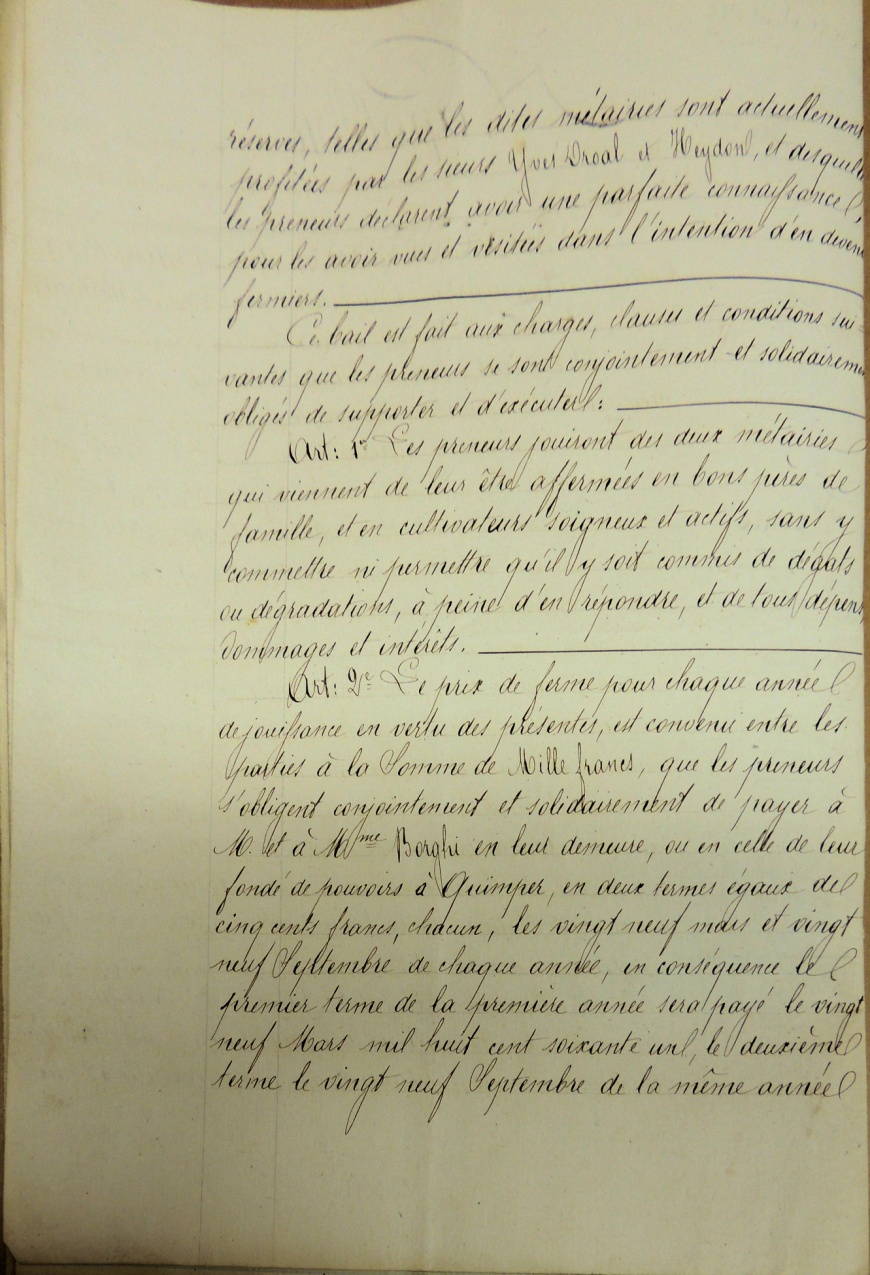 réserves, telles que les dites métairies sont actuellement
profitées par les sieurs Yves Droal et Heydon, et desquelles
les preneurs déclarent avoir une parfaite connaissance
pour les avoir vues et visitées dans l'intention d'en devenir
fermiers.
Ce bail est fait aux charges, clauses et conditions sui-
vantes que les preneurs se sont conjointement et solidairement
obligés de supporter et d'exécuter :
Art: 1er Les preneurs jouiront des deux métairies
qui viennent de leur être affermées en bons pères de
famille, et en cultivateurs soigneux et actifs, sans y
commettre ni permettre qu'il y soit commis de dégats
ou dégradations, à peine d'en répondre, et de tous dépens,
dommages et intérêts.
Art: 2e Le prix de ferme pour chaque année
de jouissance en vertu des présentes, est convenu entre les
parties à la Somme de Mille francs, que les preneurs
s'obligent conjointement et solidairement de payer à
M. et à Mme Borghi en leur demeure, ou en celle de leur
fondé de pouvoirs à Quimper, en deux termes égaux de
cinq cents francs, chacun, les vingt neuf mars et vingt
neuf Septembre de chaque année, en conséquence le
premier terme de la première année sera payé le vingt
neuf Mars mil huit cent soixante un, le deuxième
terme le vingt neuf Septembre de la même année